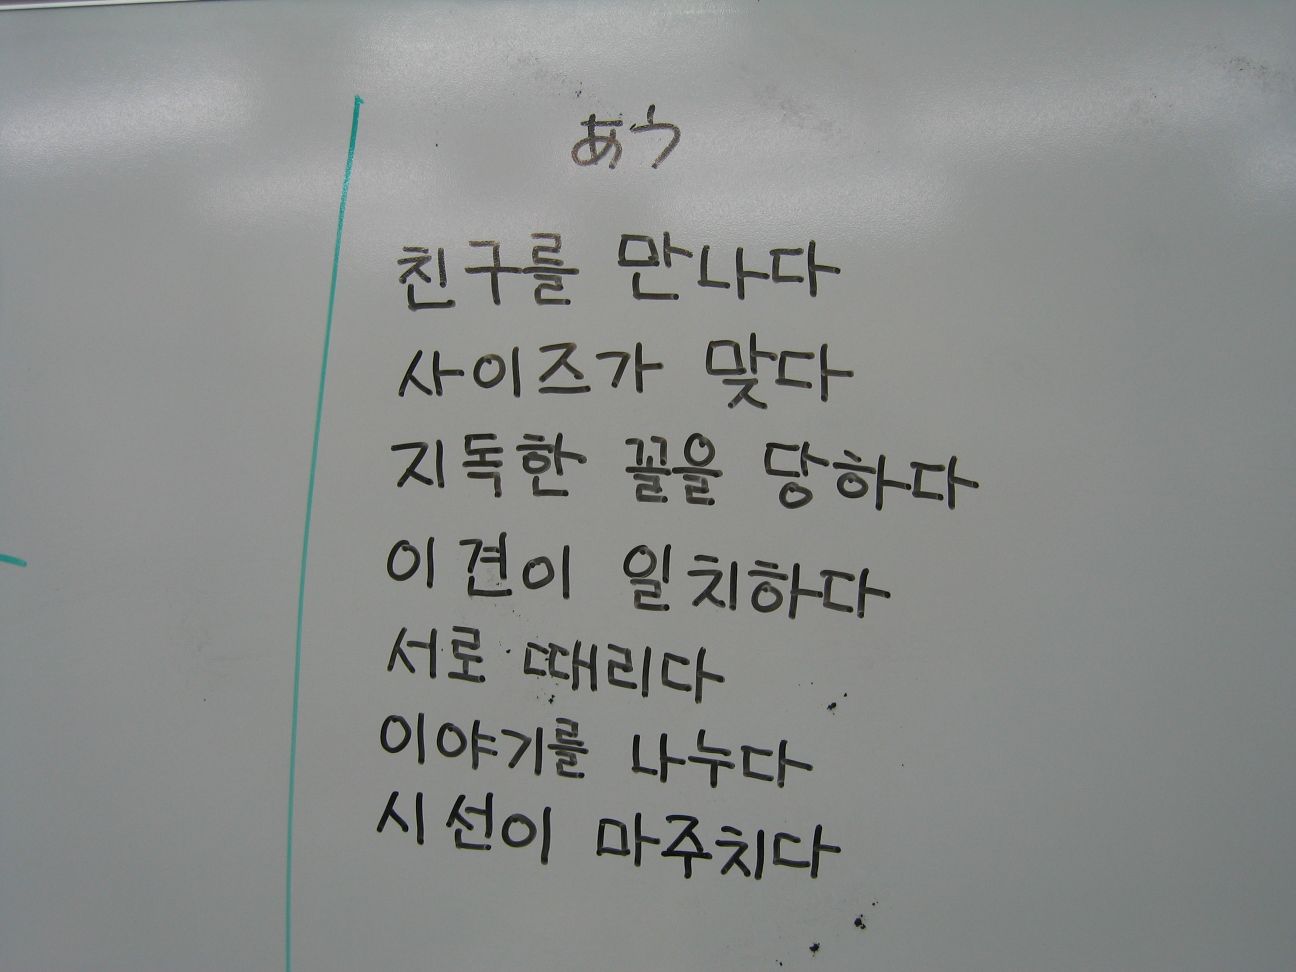 あう
친구를 만나다
사이즈가 맞다
지독한 꼴을 당하다
이견이 일치하다
서로 때리다
이야기를 나누다
시선이 마주치다